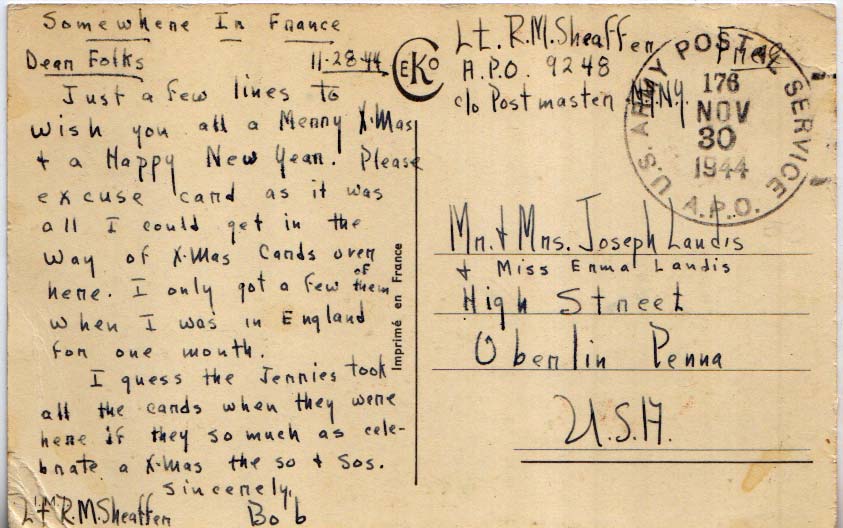 Somewhere In France
Dear Folks 11-28-44
Just a few lines to
wish you all a Merry X-Mas
+ a Happy New Year. Please
excuse card as it was
all I could get in the
way of X-Mas Cards over
here. I only got a few of them
when I was in England
for one month.
I guess the Jerries took
all the cards when they were
here if they so much as cele-
brate a X-Mas the so + sos.
Sincerely,
Bob
Lt. R.M. Sheaffer
EKO
Imprimé en France
Lt. R.M. Sheaffer
A.P.O. 9248
c/o Postmaster N.Y. N.Y.
Free
U.S. ARMY POSTAL SERVICE
176
NOV
30
1944
A.P.O.
Mr. + Mrs. Joseph Landis
+ Miss Erma Landis
High Street
Oberlin Penna
U.S.A.